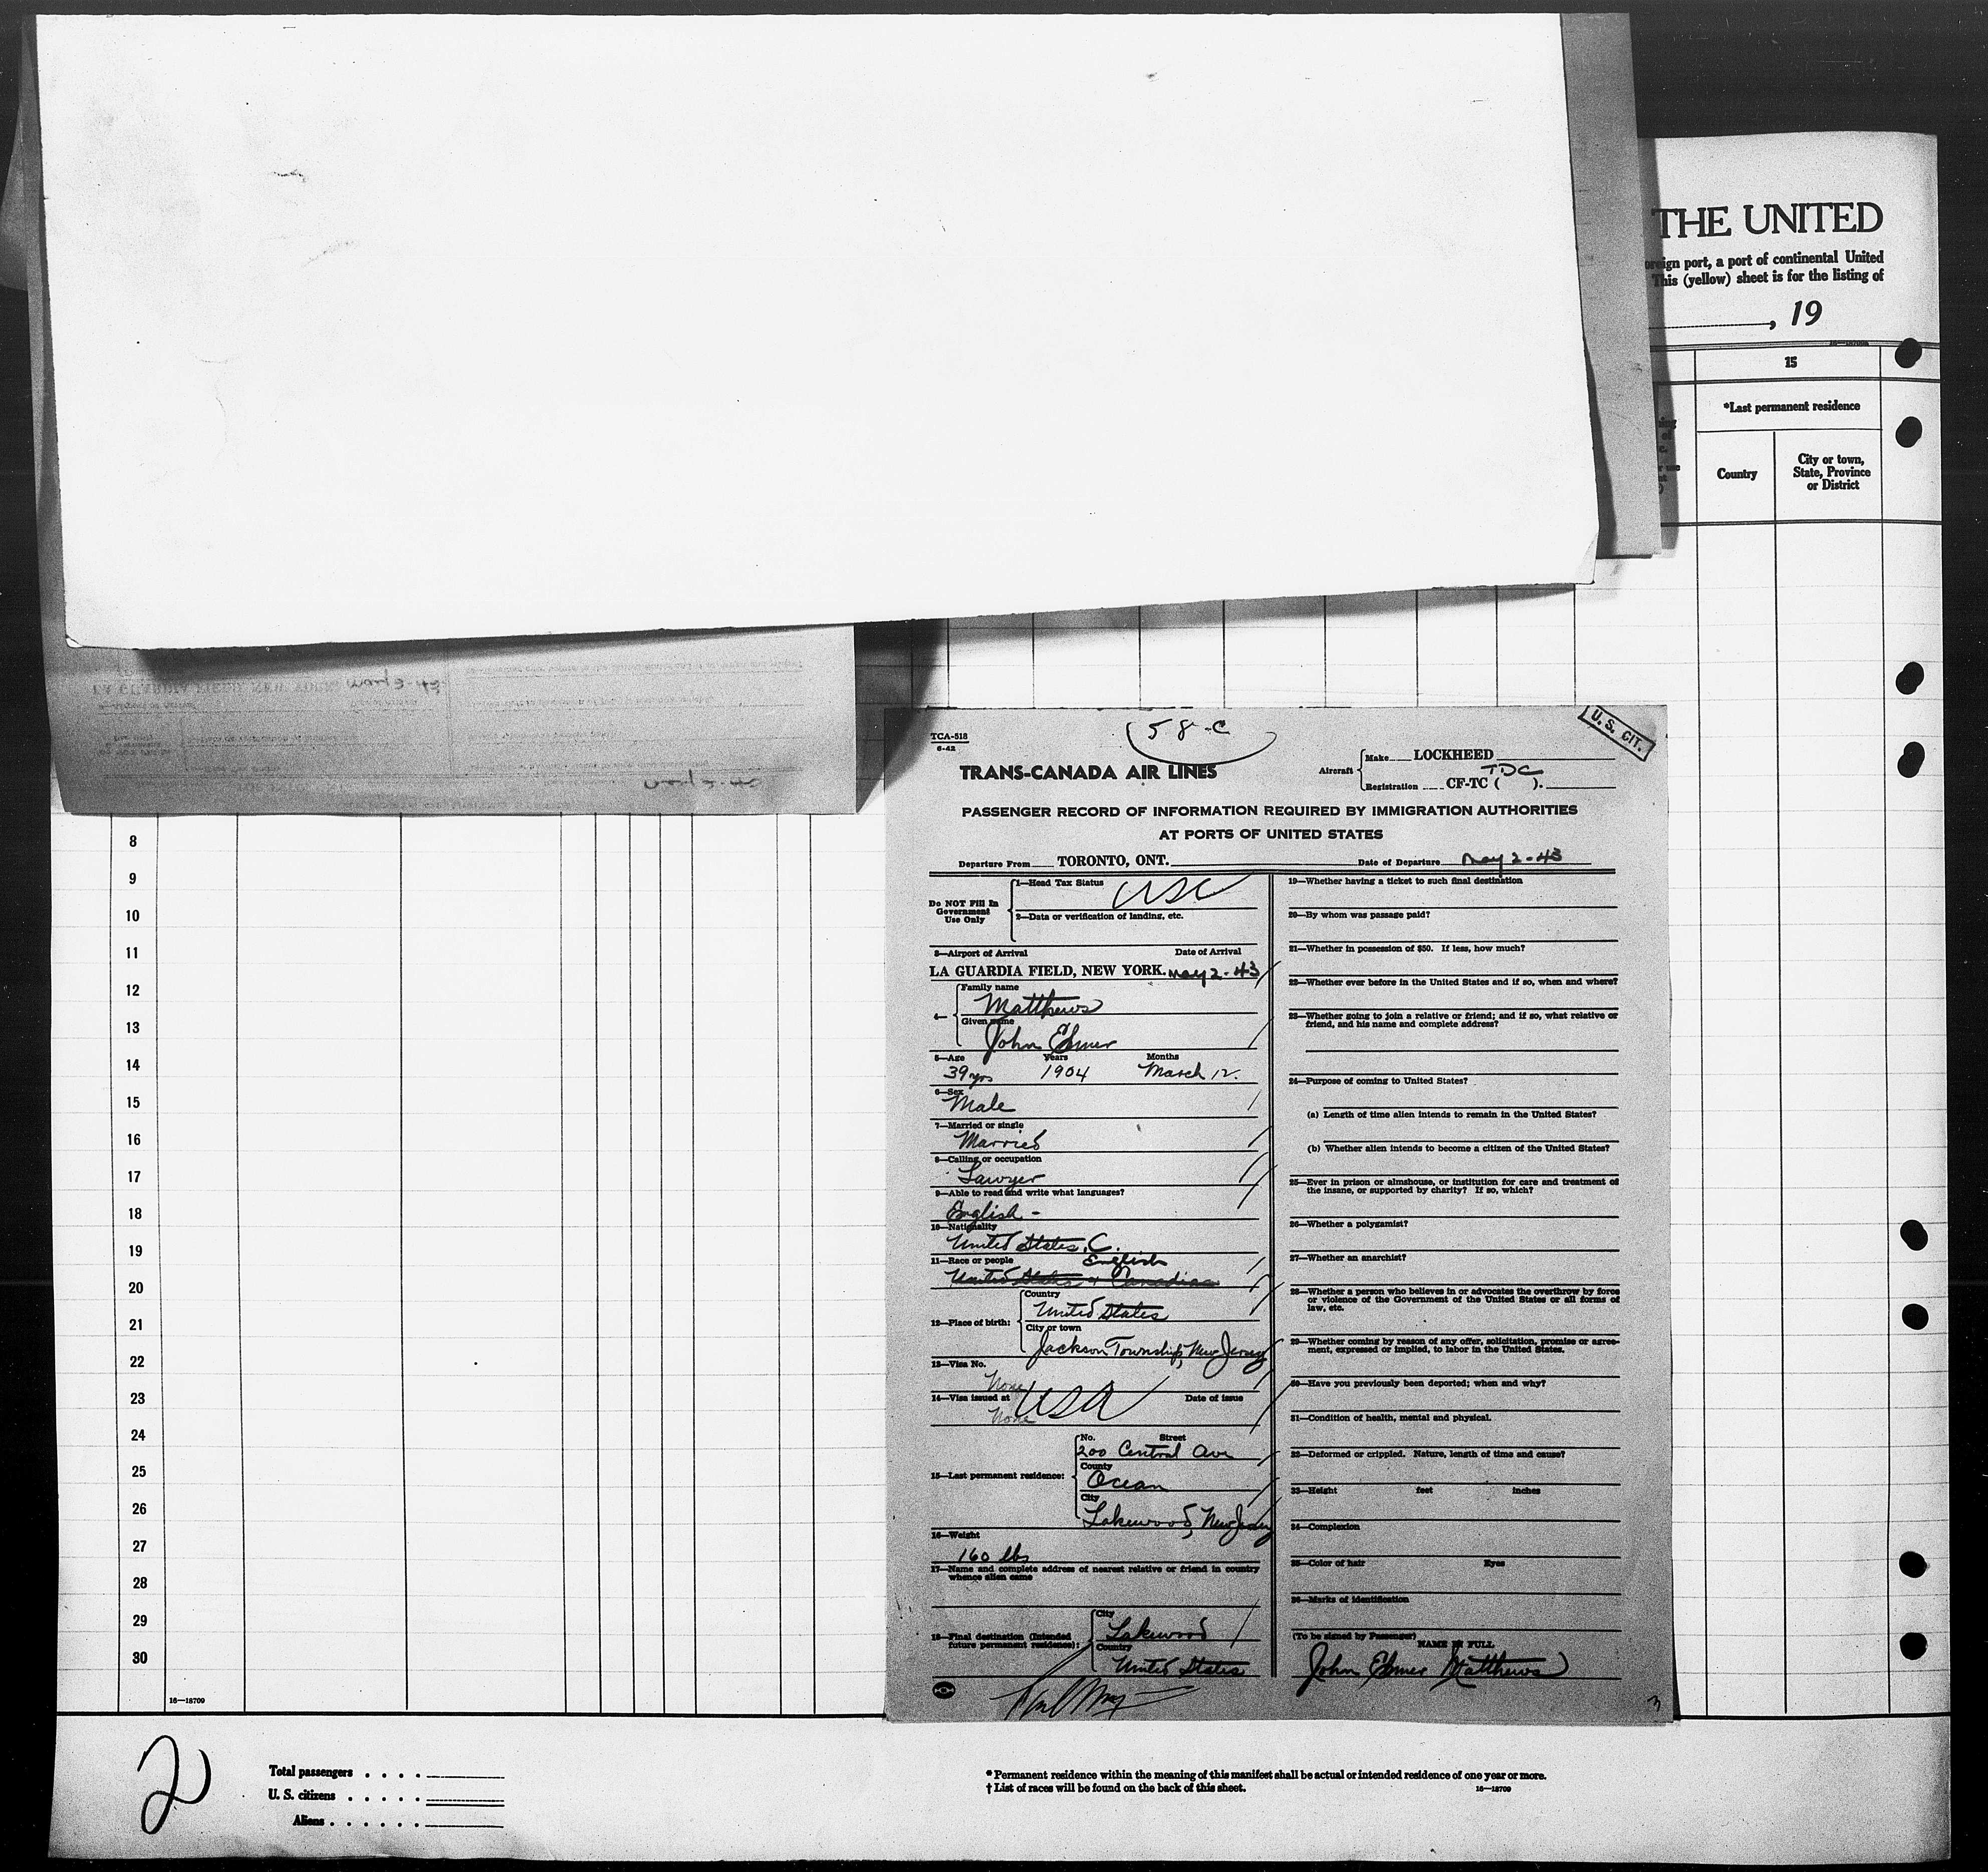 THE UNITED
oreign port, a port of continental United
This (yellow) sheet is for the listing of
, 19
15
*Last permanent residence
Country
City or town,
State, Province
or District
LA GUARDIA FIELD, NEW YORK. May 2-43
May 2-43
8
9
10
11
12
13
14
15
16
17
18
19
20
21
22
23
24
25
26
27
28
29
30
16—18709
2
Total passengers . . . .
U. S. citizens . . . . .
Aliens . . . . . .
TCA-518
6-42
58-C
U. S. CIT.
TRANS-CANADA AIR LINES
Aircraft
Make LOCKHEED
Registration CF-TC (TDC).
PASSENGER RECORD OF INFORMATION REQUIRED BY IMMIGRATION AUTHORITIES
AT PORTS OF UNITED STATES
Departure From TORONTO, ONT. Date of Departure May 2-43
Do NOT Fill In
Government
Use Only
1—Head Tax Status USC
2—Data or verification of landing, etc.
3—Airport of Arrival Date of Arrival
LA GUARDIA FIELD, NEW YORK. May 2-43
4—
Family name
Matthews
Given name
John Elmer
5—Age Years Months
39 yrs 1904 March 12.
6—Sex
Male
7—Married or single
Married
8—Calling or occupation
Lawyer
9—Able to read and write what languages?
English -
10—Nationality
United States. C.
11—Race or people English
United States & Canadian
12—Place of birth:
Country
United States
City or town
Jackson Township, New Jersey
13—Visa No.
None
14—Visa issued at USA Date of issue
None
15—Last permanent residence:
No. Street
200 Central Ave
County
Ocean
City
Lakewood, New Jersey
16—Weight
160 lbs
17—Name and complete address of nearest relative or friend in country
whence alien came
18—Final destination (Intended
future permanent residence):
City
Lakewood
Country
United States
19—Whether having a ticket to such final destination
20—By whom was passage paid?
21—Whether in possession of $50. If less, how much?
22—Whether ever before in the United States and if so, when and where?
23—Whether going to join a relative or friend; and if so, what relative or
friend, and his name and complete address?
24—Purpose of coming to United States?
(a) Length of time alien intends to remain in the United States?
(b) Whether alien intends to become a citizen of the United States?
25—Ever in prison or almshouse, or institution for care and treatment of
the insane, or supported by charity? If so, which?
26—Whether a polygamist?
27—Whether an anarchist?
28—Whether a person who believes in or advocates the overthrow by force
or violence of the Government of the United States or all forms of
law, etc.
29—Whether coming by reason of any offer, solicitation, promise or agree-
ment, expressed or implied, to labor in the United States.
30—Have you previously been deported; when and why?
31—Condition of health, mental and physical.
32—Deformed or crippled. Nature, length of time and cause?
33—Height feet inches
34—Complexion
35—Color of hair Eyes
36—Marks of identification
(To be signed by Passenger)
NAME IN FULL
John Elmer Matthews
3
* Permanent residence within the meaning of this manifest shall be actual or intended residence of one year or more.
† List of races will be found on the back of this sheet. 16—18709